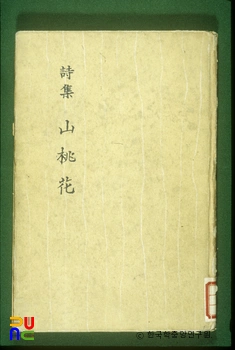 詩集 山桃花
© 한국학중앙연구원